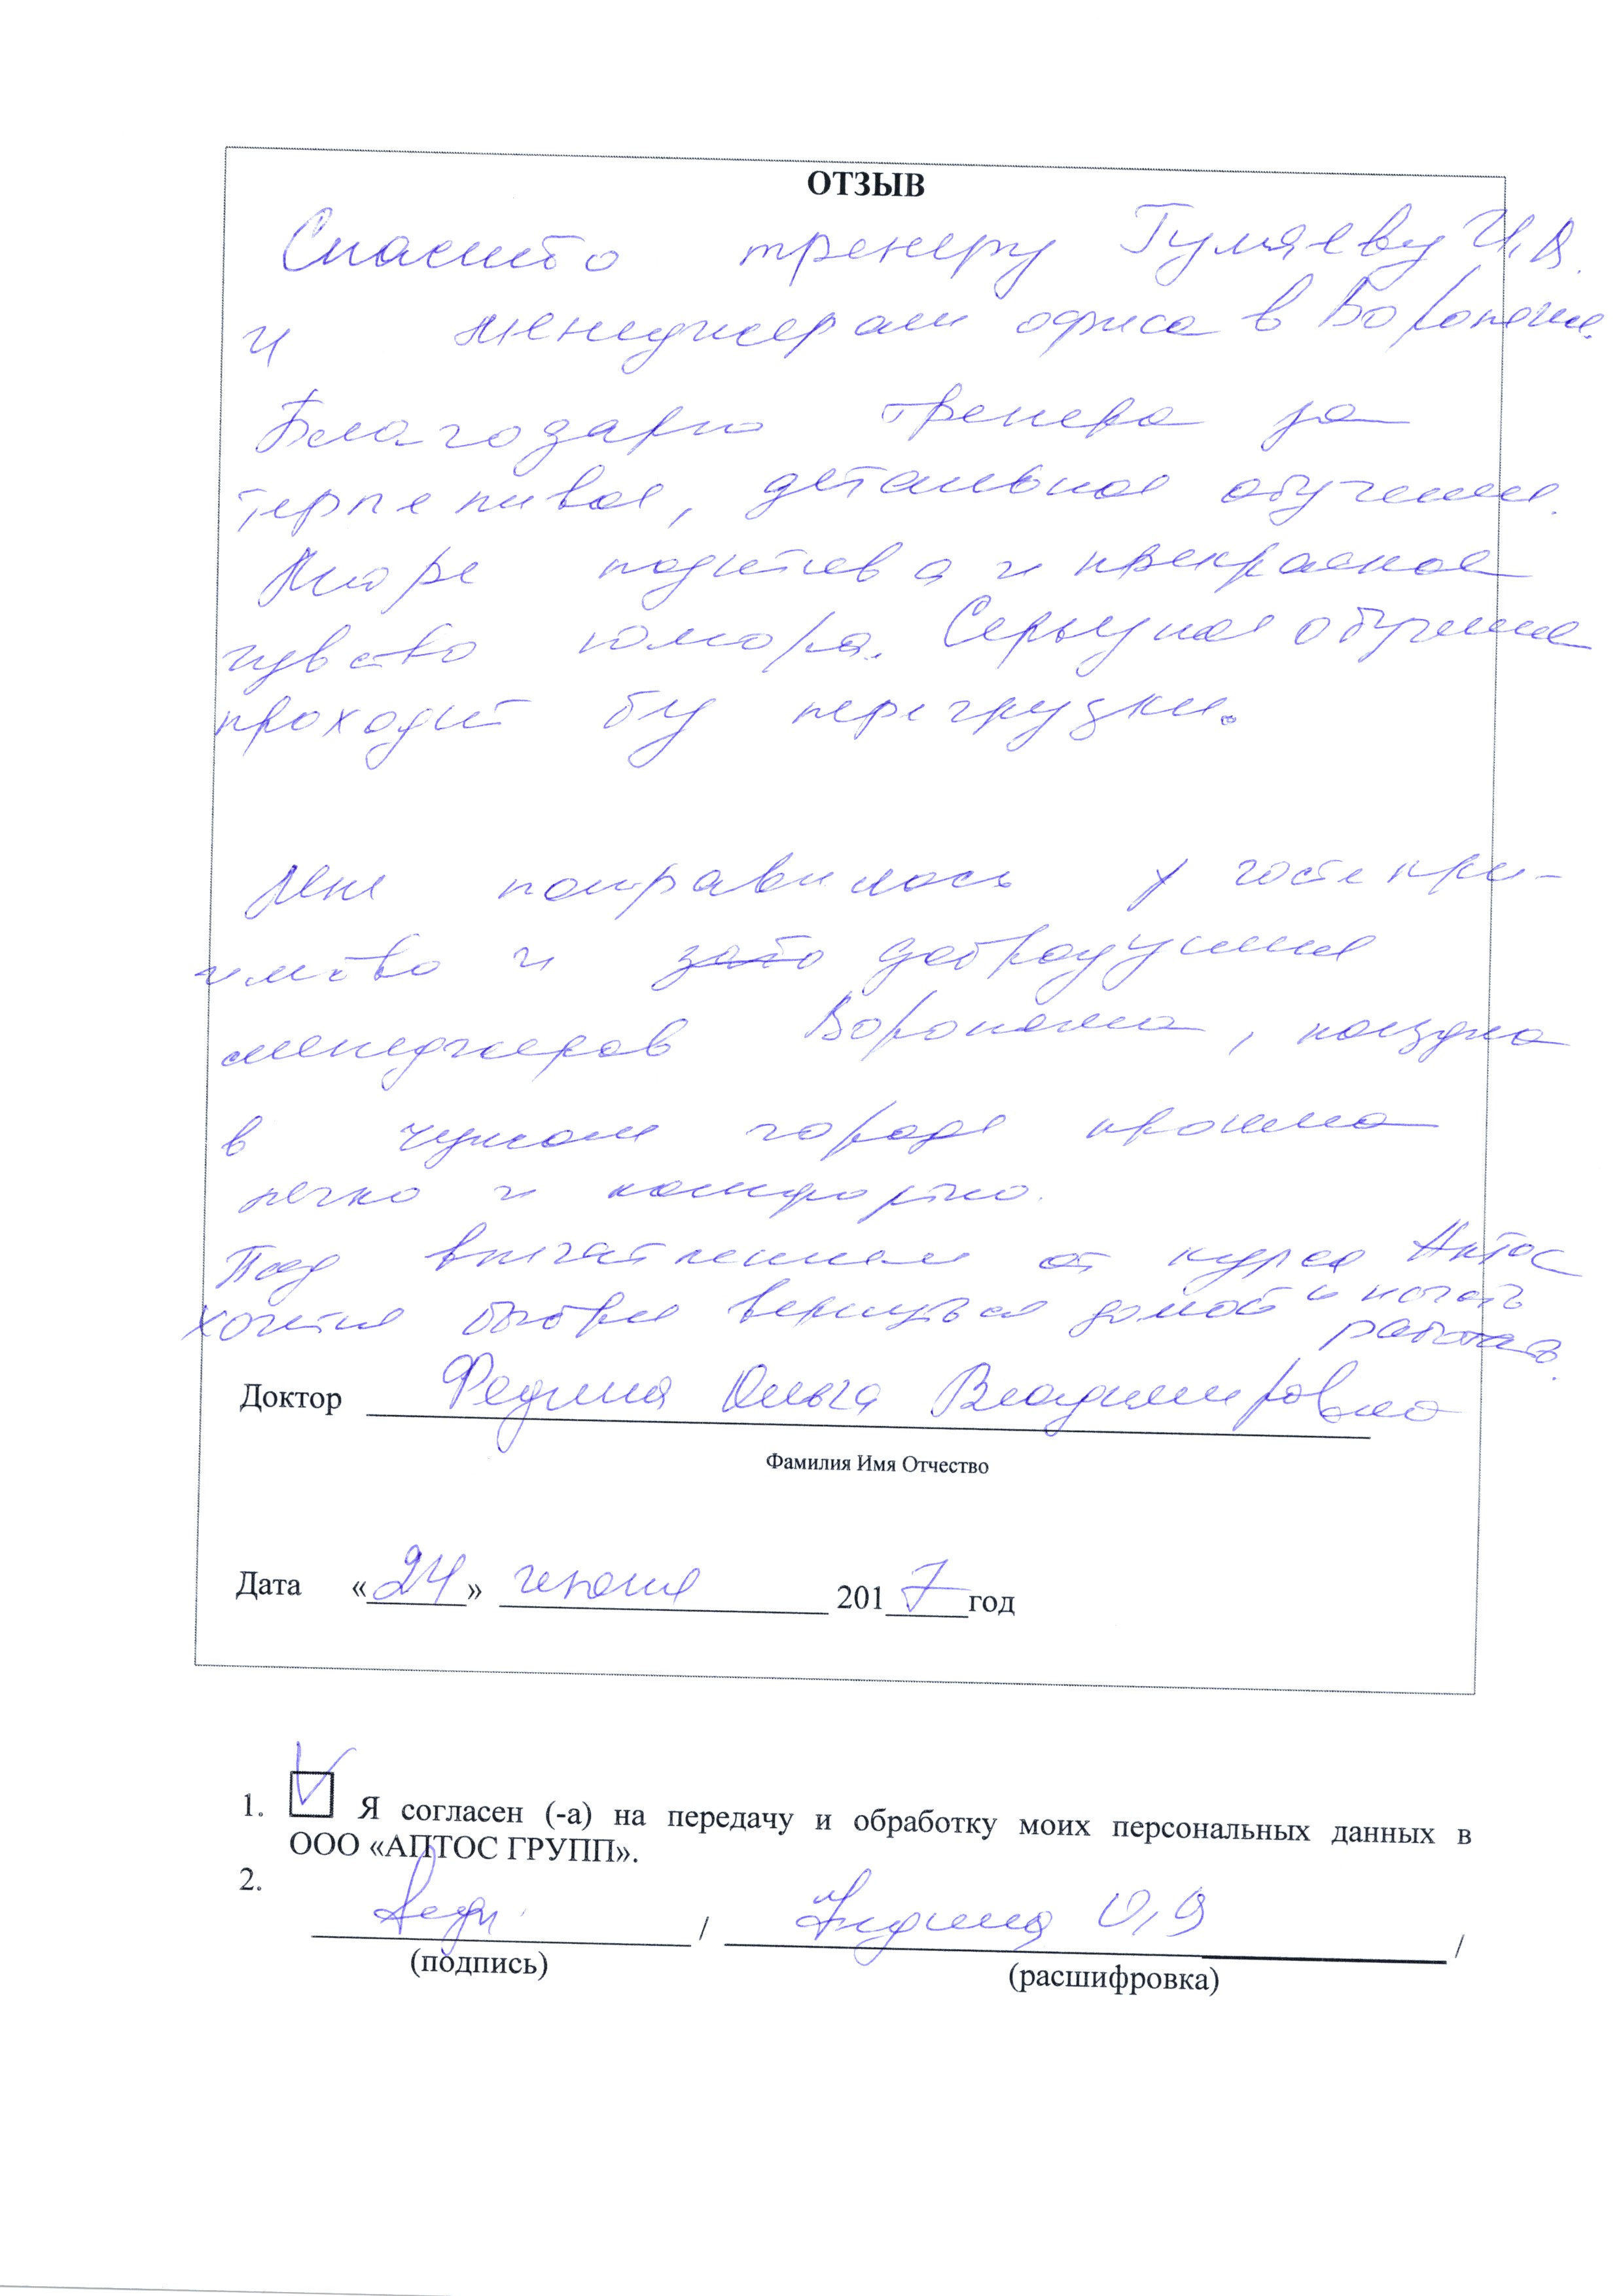 ОТЗЫВ
Спасибо тренеру Гуляеву И.В.
и менеджерам офиса в Воронеже.
Благодарю тренера за
терпеливое, детальное обучение.
Море позитива и прекрасное
чувство юмора. Серьезное обучение
проходит без перегрузки.
Мне понравилось гостепри-
имство и добродушие
менеджеров Воронежа, поездка
в чужом городе прошла
легко и комфортно.
Под впечатлением от курса Аптос
хочется быстрее вернуться домой и начать
работать.
Доктор Федина Ольга Владимировна
Фамилия Имя Отчество
Дата «24» июня 2017 год
1. Я согласен (-а) на передачу и обработку моих персональных данных в
ООО «АПТОС ГРУПП».
2.
/ Федина О.В /
(подпись) (расшифровка)